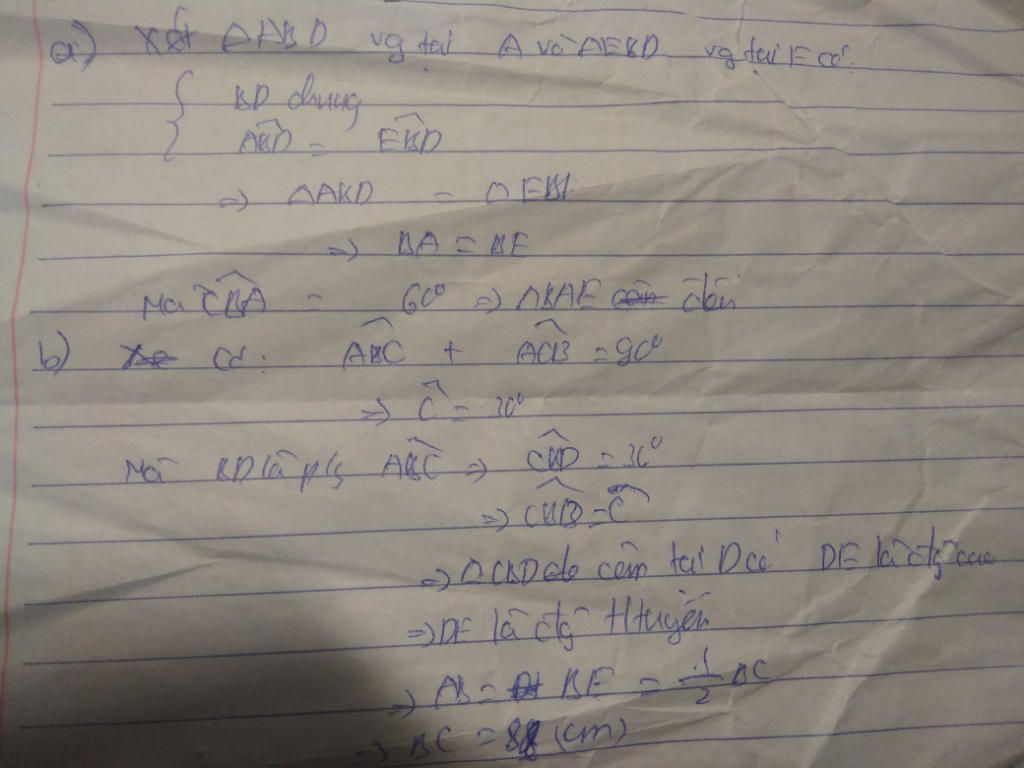 a) Xét ΔABD vg tại A và ΔEBD vg tại E có:
{ BD chung
ABD^ = EBD^
=> ΔABD = ΔEBD
=> BA = BE
Mà CBA^ = 60° => ΔBAE cân đều
b) Xe Có: ABC^ + ACB^ = 90°
=> C^ = 30°
Mà BD là p/g ABC^ => CBD^ = 30°
=> CBD^ = C^
=> ΔCBD cân tại D có DE là đg cao
=> DE là đg ttuyến
=> AB = BE = 1/2 BC
=> BC = 8 (cm)